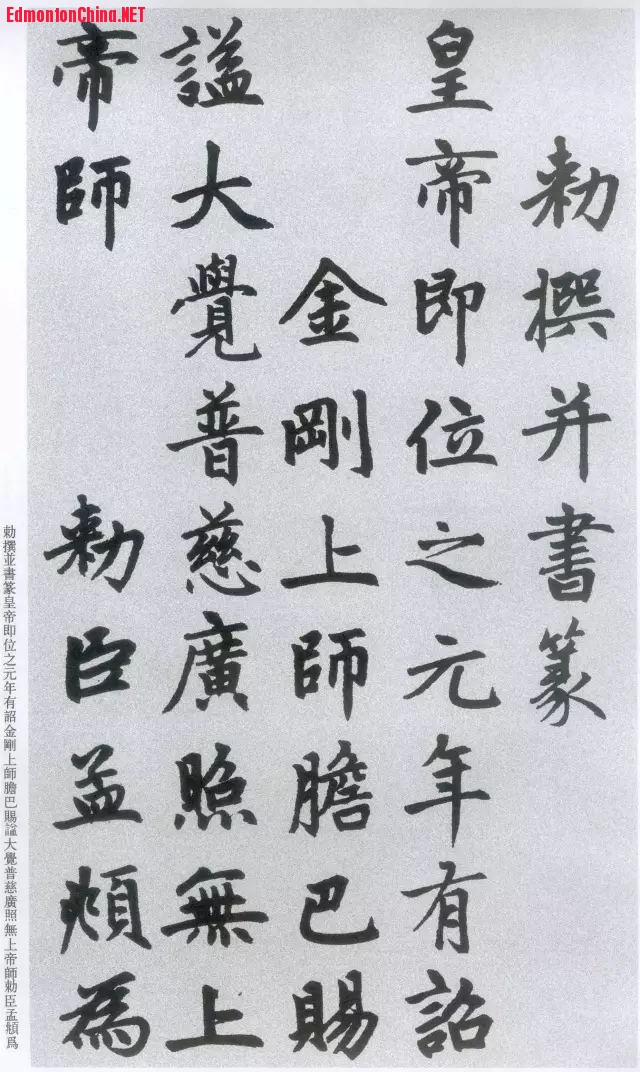 EdmontonChina.NET
勅撰并書篆
皇帝即位之元年有詔
金剛上師膽巴賜
謚大覺普慈廣照無上
帝師勅臣孟頫為
勅撰並書篆皇帝即位之元年有詔金剛上師膽巴賜謚大覺普慈廣照無上帝師勅臣孟頫爲